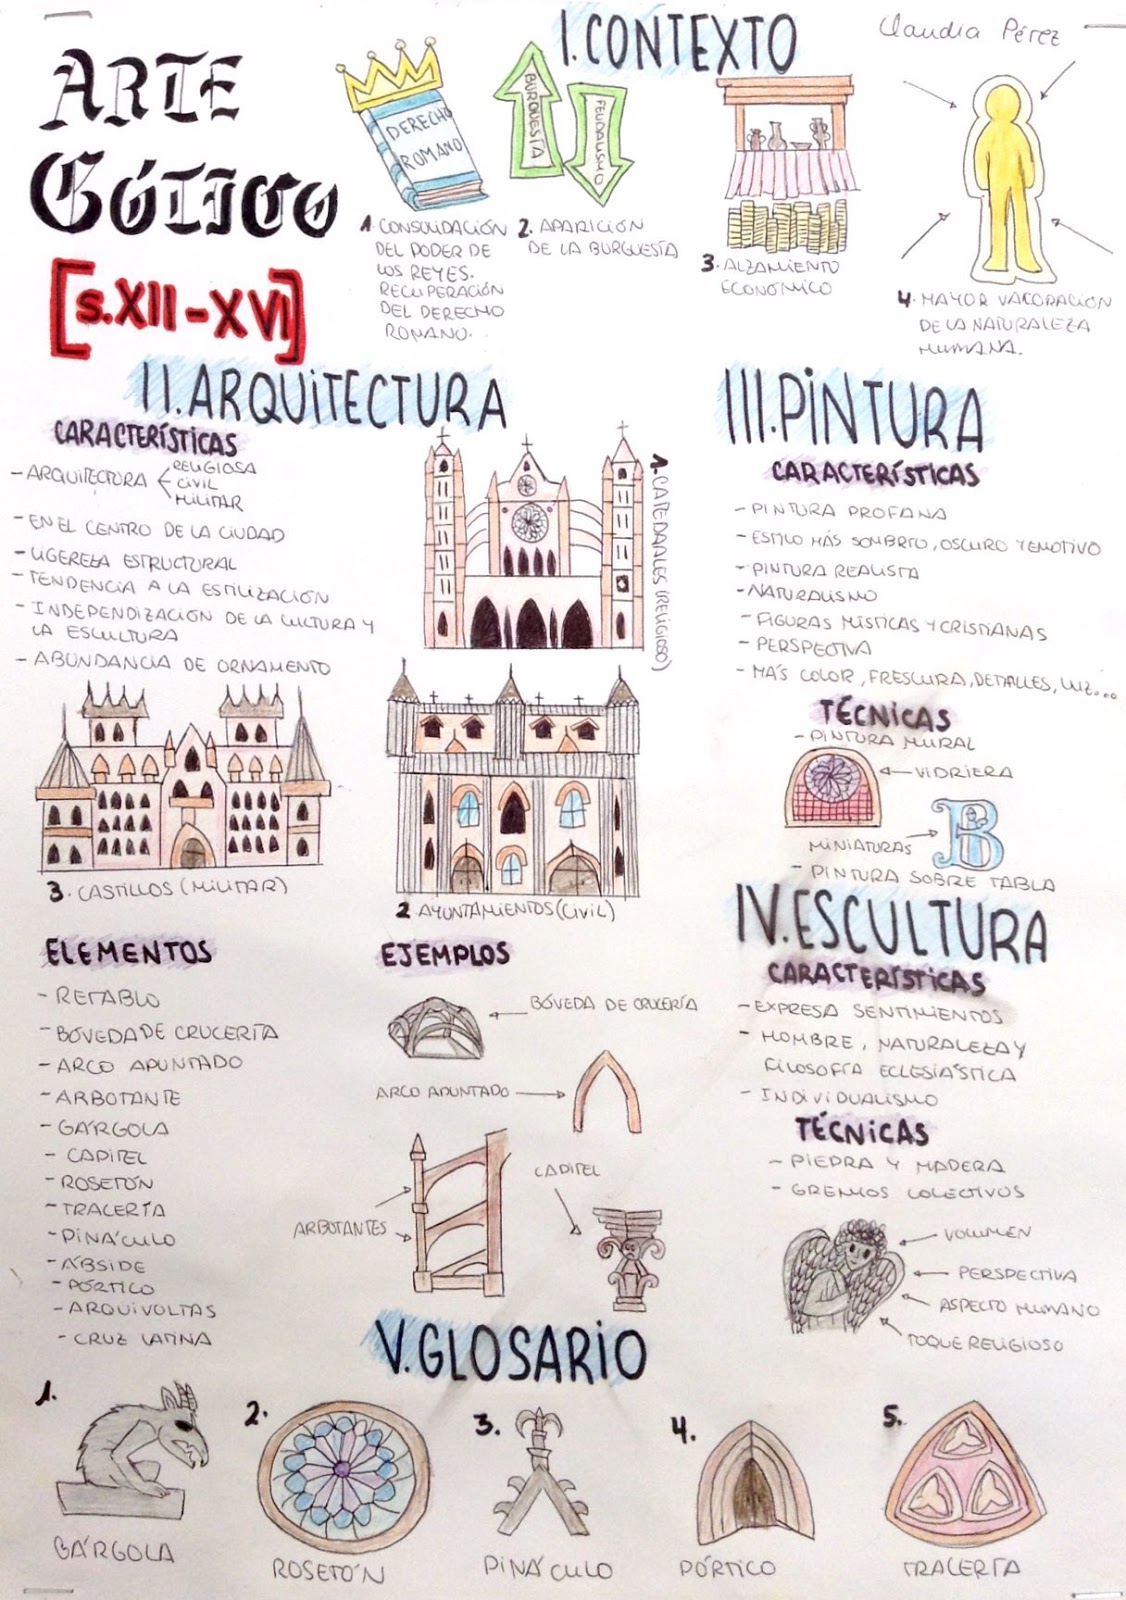 ARTE
GÓTICO
[S.XII-XVI]
Claudia Pérez
I. CONTEXTO
DERECHO
ROMANO
BURGUESÍA
FEUDALISMO
1. CONSOLIDACIÓN
DEL PODER DE
LOS REYES.
RECUPERACIÓN
DEL DERECHO
ROMANO.
2. APARICIÓN
DE LA BURGUESÍA
3. ALZAMIENTO
ECONÓMICO
4. MAYOR VALORACIÓN
DE LA NATURALEZA
HUMANA.
II. ARQUITECTURA
CARACTERÍSTICAS
- ARQUITECTURA
RELIGIOSA
CIVIL
MILITAR
- EN EL CENTRO DE LA CIUDAD
- LIGEREZA ESTRUCTURAL
- TENDENCIA A LA ESTILIZACIÓN
- INDEPENDIZACIÓN DE LA CULTURA Y
LA ESCULTURA
- ABUNDANCIA DE ORNAMENTO
1. CATEDRALES (RELIGIOSO)
3. CASTILLOS (MILITAR)
2. AYUNTAMIENTOS (CIVIL)
ELEMENTOS
- RETABLO
- BÓVEDA DE CRUCERÍA
- ARCO APUNTADO
- ARBOTANTE
- GÁRGOLA
- CAPITEL
- ROSETÓN
- TRACERÍA
- PINÁCULO
- ÁBSIDE
- PÓRTICO
- ARQUIVOLTAS
- CRUZ LATINA
EJEMPLOS
BÓVEDA DE CRUCERÍA
ARCO APUNTADO
ARBOTANTES
CAPITEL
III. PINTURA
CARACTERÍSTICAS
- PINTURA PROFANA
- ESTILO MÁS SOMBRÍO, OSCURO Y EMOTIVO
- PINTURA REALISTA
- NATURALISMO
- FIGURAS MÍSTICAS Y CRISTIANAS
- PERSPECTIVA
- MÁS COLOR, FRESCURA, DETALLES, LUZ...
TÉCNICAS
- PINTURA MURAL
VIDRIERA
MINIATURAS
B
- PINTURA SOBRE TABLA
IV. ESCULTURA
CARACTERÍSTICAS
- EXPRESA SENTIMIENTOS
- HOMBRE, NATURALEZA Y
FILOSOFÍA ECLESIÁSTICA
- INDIVIDUALISMO
TÉCNICAS
- PIEDRA Y MADERA
- GREMIOS COLECTIVOS
VOLUMEN
PERSPECTIVA
ASPECTO HUMANO
TOQUE RELIGIOSO
V. GLOSARIO
1.
GÁRGOLA
2.
ROSETÓN
3.
PINÁCULO
4.
PÓRTICO
5.
TRACERÍA